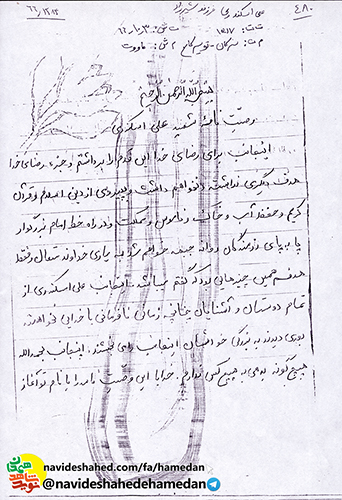 علی اسکندری فرزند شیرزاد
۴۸۰
بسم الله الرحمن الرحیم
وصیت نامه شهید علی اسکندری
اینجانب برای رضای خدا این قدم را برداشتم و جز رضای خدا
هدف دیگری نداشته و نخواهم داشت و پیروی از دین اسلام و قرآن
کریم و حفظ آب و خاک و ناموس و مملکت و در راه خط امام بزرگوار
پا به پای رزمندگان روانه جبهه خواهم شد به یاری خداوند متعال و فقط
هدفم همین چیزهایی بود که گفتم میباشد. اینجانب علی اسکندری از
تمام دوستان و آشنایان چنانچه زمانی نافرمانی یا خدایی نخواسته
بدی دیدند به بزرگی خودشان اینجانب را می بخشند. اینجانب بحمدالله
هیچ گونه بدهی به هیچ کس ندارم. خدایا این وصیت نامه را با نام تو آغاز
نوید شاهد همدان
navideshahed.com/fa/hamedan
@navideshahedehamedan